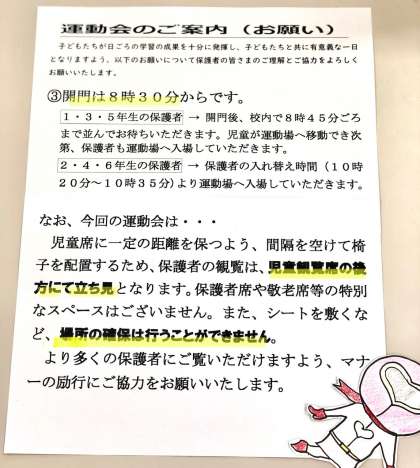 運動会のご案内（お願い）
子どもたちが日ごろの学習の成果を十分に発揮し、子どもたちと共に有意義な一日
となりますよう、以下のお願いについて保護者の皆さまのご理解とご協力をよろしく
お願いいたします。
③開門は８時３０分からです。
１・３・５年生の保護者 → 開門後、校内で８時４５分ごろ
まで並んでお待ちいただきます。児童が運動場へ移動でき次
第、保護者も運動場へ入場していただきます。
２・４・６年生の保護者 → 保護者の入れ替え時間（１０時
２０分～１０時３５分）より運動場へ入場していただきます。
なお、今回の運動会は・・・
児童席に一定の距離を保つよう、間隔を空けて椅
子を配置するため、保護者の観覧は、児童観覧席の後
方にて立ち見となります。保護者席や敬老席等の特別
なスペースはございません。また、シートを敷くな
ど、場所の確保は行うことができません。
より多くの保護者にご覧いただけますよう、マナ
ーの励行にご協力をお願いいたします。